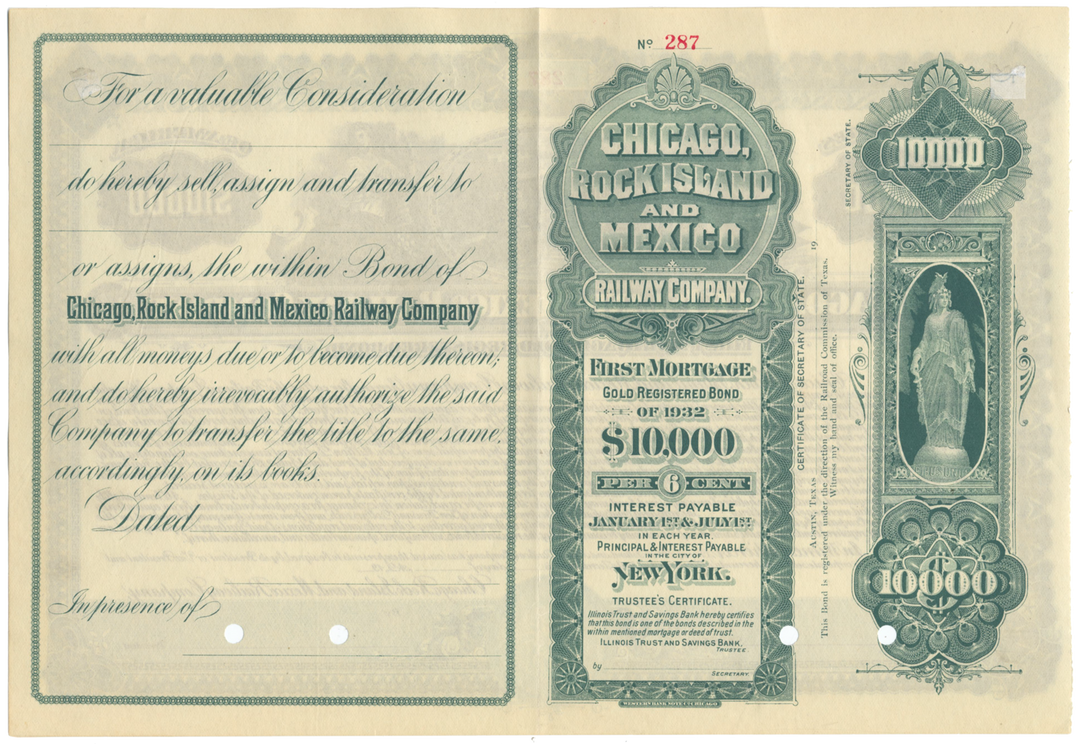 For a valuable Consideration
do hereby sell, assign and transfer to
or assigns, the within Bond of
Chicago, Rock Island and Mexico Railway Company
with all moneys due or to become due thereon;
and do hereby irrevocably authorize the said
Company to transfer the title to the same,
accordingly, on its books.
Dated
In presence of
No 287
CHICAGO,
ROCK ISLAND
AND
MEXICO
RAILWAY COMPANY.
FIRST MORTGAGE
GOLD REGISTERED BOND
OF 1932
$10,000
PER 6 CENT
INTEREST PAYABLE
JANUARY 1ST & JULY 1ST
IN EACH YEAR.
PRINCIPAL & INTEREST PAYABLE
IN THE CITY OF
NEW YORK.
TRUSTEE'S CERTIFICATE.
Illinois Trust and Savings Bank hereby certifies
that this bond is one of the bonds described in the
within mentioned mortgage or deed of trust.
ILLINOIS TRUST AND SAVINGS BANK,
TRUSTEE
by
SECRETARY.
WESTERN BANK NOTE CO. CHICAGO
CERTIFICATE OF SECRETARY OF STATE.
AUSTIN, TEXAS 19
This Bond is registered under the direction of the Railroad Commission of Texas.
Witness my hand and seal of office.
SECRETARY OF STATE.
10000
$
10000